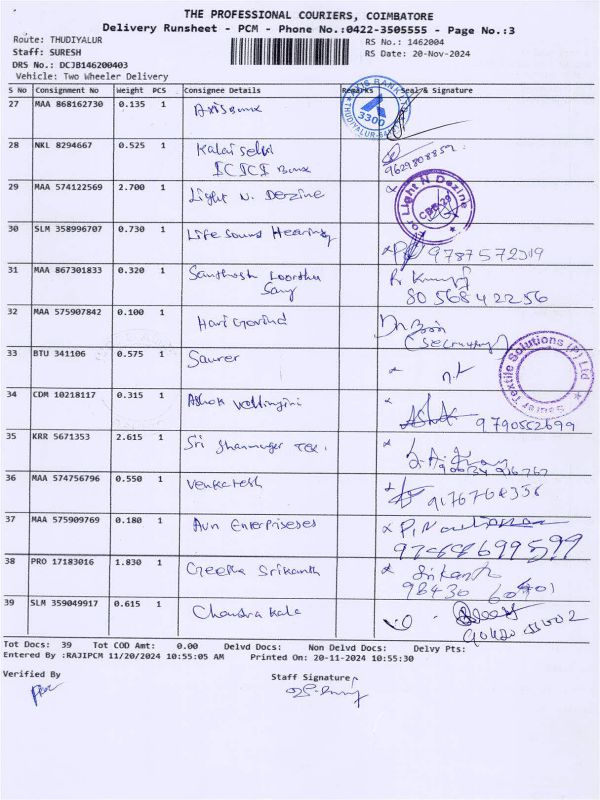 THE PROFESSIONAL COURIERS, COIMBATORE
Delivery Runsheet - PCM - Phone No.:0422-3505555 - Page No.:3
Route: THUDIYALUR RS No.: 1462004
Staff: SURESH RS Date: 20-Nov-2024
DRS No.: DCJB146200403
Vehicle: Two Wheeler Delivery
S No Consignment No Weight PCS Consignee Details Remarks Seal & Signature
27 MAA 868162730 0.135 1 Axis Bank AXIS BANK LTD 3300 THUDIYALUR
28 NKL 8294667 0.525 1 Kalai Selvi
ICICI Bank 9629808852
29 MAA 574122569 2.700 1 Light N. Dezine For Light N Dezine CBE-29
30 SLM 358996707 0.730 1 Life Sound Hearing 9787572319
31 MAA 867301833 0.320 1 Santhosh
R 80568 42256
32 MAA 575907842 0.100 1 Hari Govind
(Security)
33 BTU 341106 0.575 1 Saurer Saurer Textile Solutions (P) Ltd
34 CDM 10218117 0.315 1 Ashok Ashok 9790552699
35 KRR 5671353 2.615 1 Sri Shanmuga Tex.
36 MAA 574756796 0.550 1 Venkatesh 9176768356
37 MAA 575909769 0.180 1 Avn Enterprises
97444699599
38 PRO 17183016 1.830 1 Geetha Srikanth Srikanth
98430 60401
39 SLM 359049917 0.615 1 Chandra Kala
Tot Docs: 39 Tot COD Amt: 0.00 Delvd Docs: Non Delvd Docs: Delvy Pts:
Entered By :RAJIPCM 11/20/2024 10:55:05 AM Printed On: 20-11-2024 10:55:30
Verified By Staff Signature